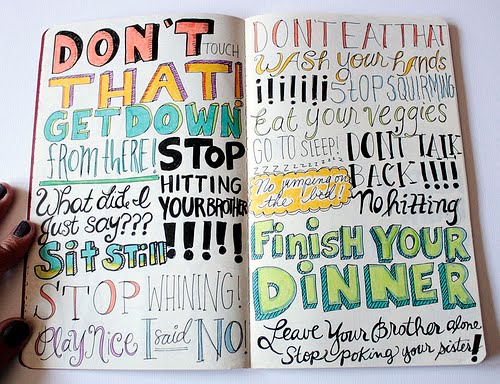 DON'T TOUCH
THAT!
GET DOWN
FROM THERE!
STOP
HITTING
YOUR BROTHER
!!!!!
What did I
just say???
Sit Still!
STOP WHINING!
Play Nice I said NO!
DON'T EAT THAT
WASH your hands
¡!¡!¡!¡ STOP SQUIRMING
Eat your veggies
GO TO SLEEP!
zzzzzzzzzzzz
DON'T TALK
BACK!!!!
No jumping on
the bed!!
No hitting
FiNiSH YOUR
DiNNER
Leave Your Brother alone
Stop poking your sister!